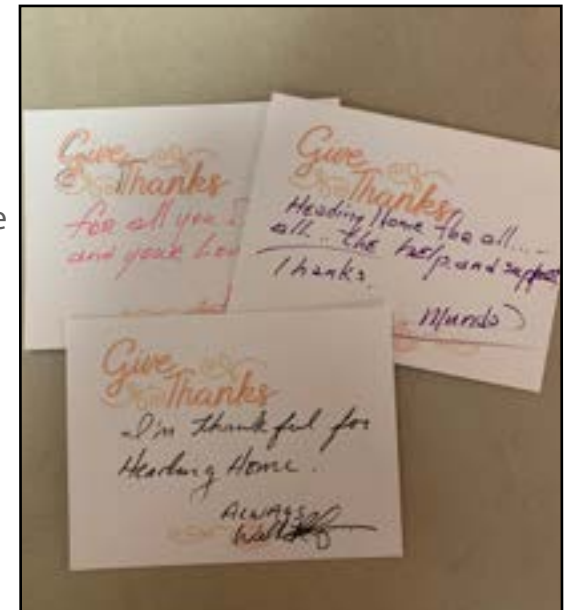 e
Give
Thanks
for all you
and your
Give
Thanks
Heading Home for all....
all.. the help and support
Thanks.
Mundo
Give
Thanks
I'm thankful for
Heading Home.
ALWAYS